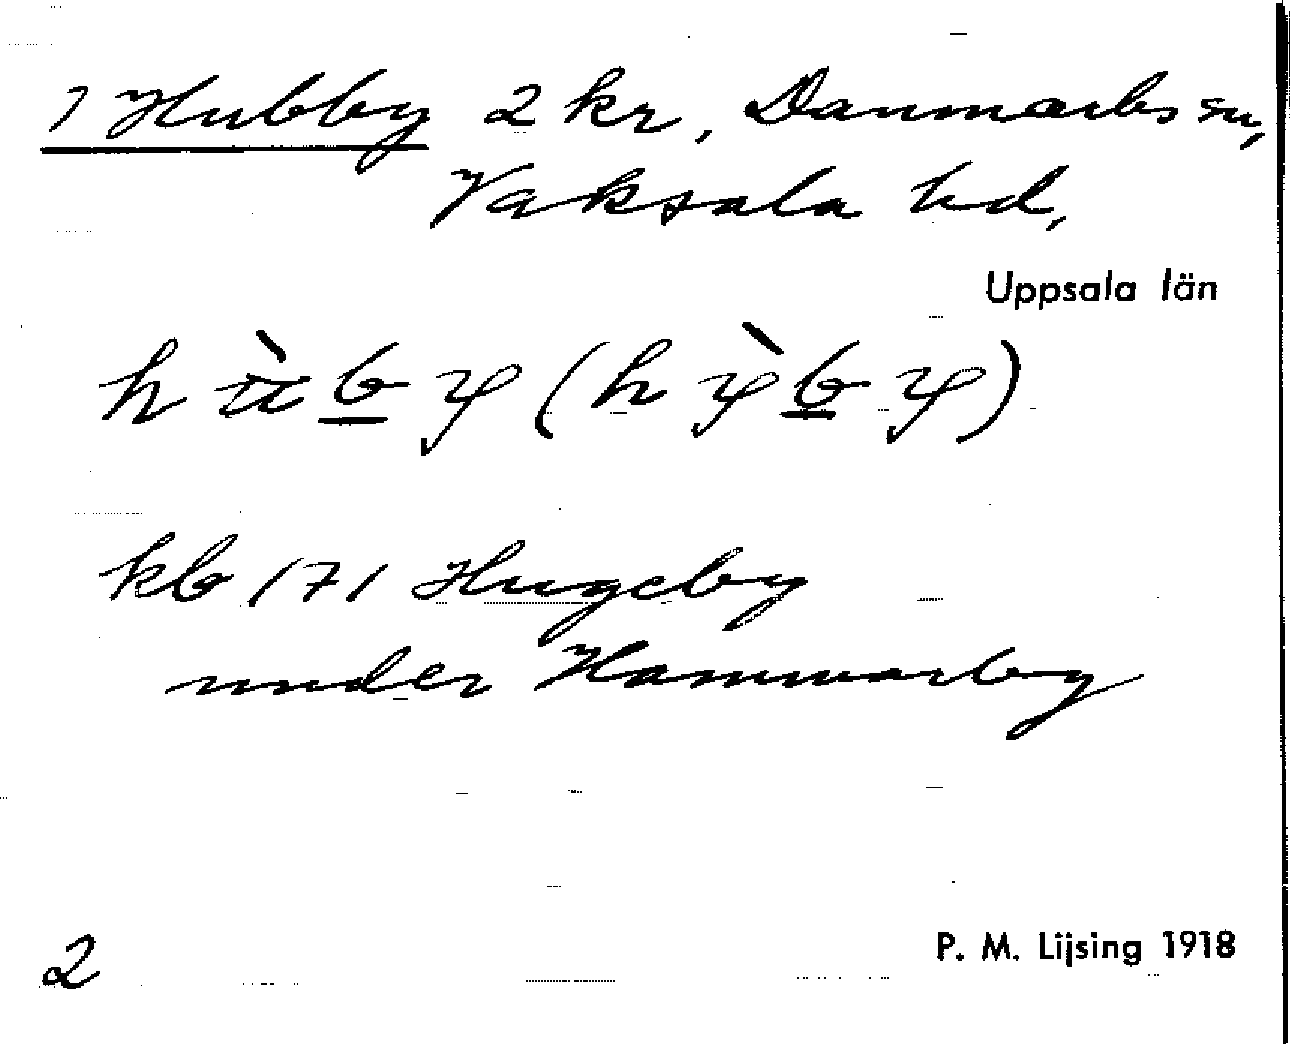 1 Hubby 2 kr, Danmarks sn,
Vaksala hd,
Uppsala län
kb 171 Hugeby
under Hammarby
2
P. M. Lijsing 1918